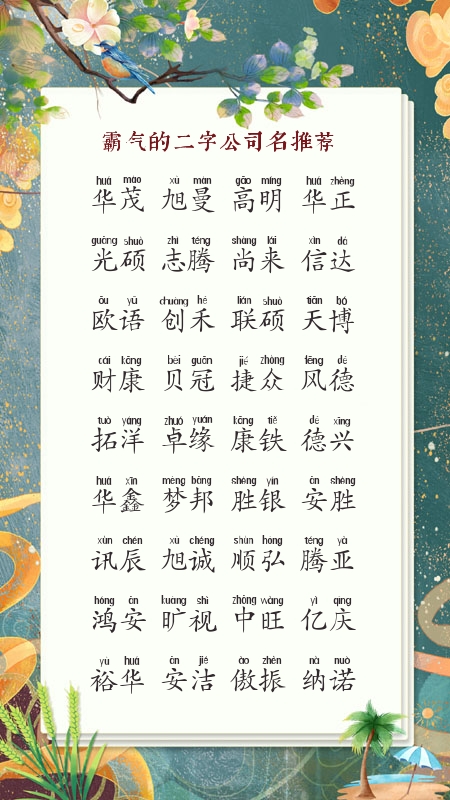 霸气的二字公司名推荐
huá mào xù màn gāo míng huá zhèng
华茂 旭曼 高明 华正
guāng shuò zhì téng shàng lái xìn dá
光硕 志腾 尚来 信达
ōu yǔ chuàng hé lián shuò tiān bó
欧语 创禾 联硕 天博
cái kāng bèi guān jié zhòng fēng dé
财康 贝冠 捷众 风德
tuò yáng zhuó yuán kāng tiě dé xīng
拓洋 卓缘 康铁 德兴
huá xīn mèng bāng shèng yín ān shèng
华鑫 梦邦 胜银 安胜
xùn chén xù chéng shùn hóng téng yà
讯辰 旭诚 顺弘 腾亚
hóng ān kuàng shì zhōng wàng yì qìng
鸿安 旷视 中旺 亿庆
yù huá ān jié ào zhèn nà nuò
裕华 安洁 傲振 纳诺